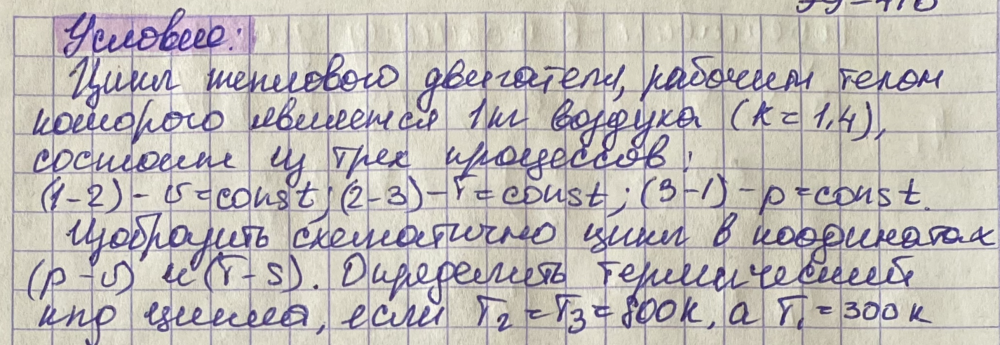 Условие:
Цикл теплового двигателя, рабочим телом
которого является 1 кг воздуха (k = 1,4),
состоит из трех процессов:
(1-2) - υ = const; (2-3) - T = const; (3-1) - p = const.
Изобразить схематично цикл в координатах
(p-υ) и (T-s). Определить термический
кпд цикла, если T₂ = T₃ = 800 К, а T₁ = 300 К